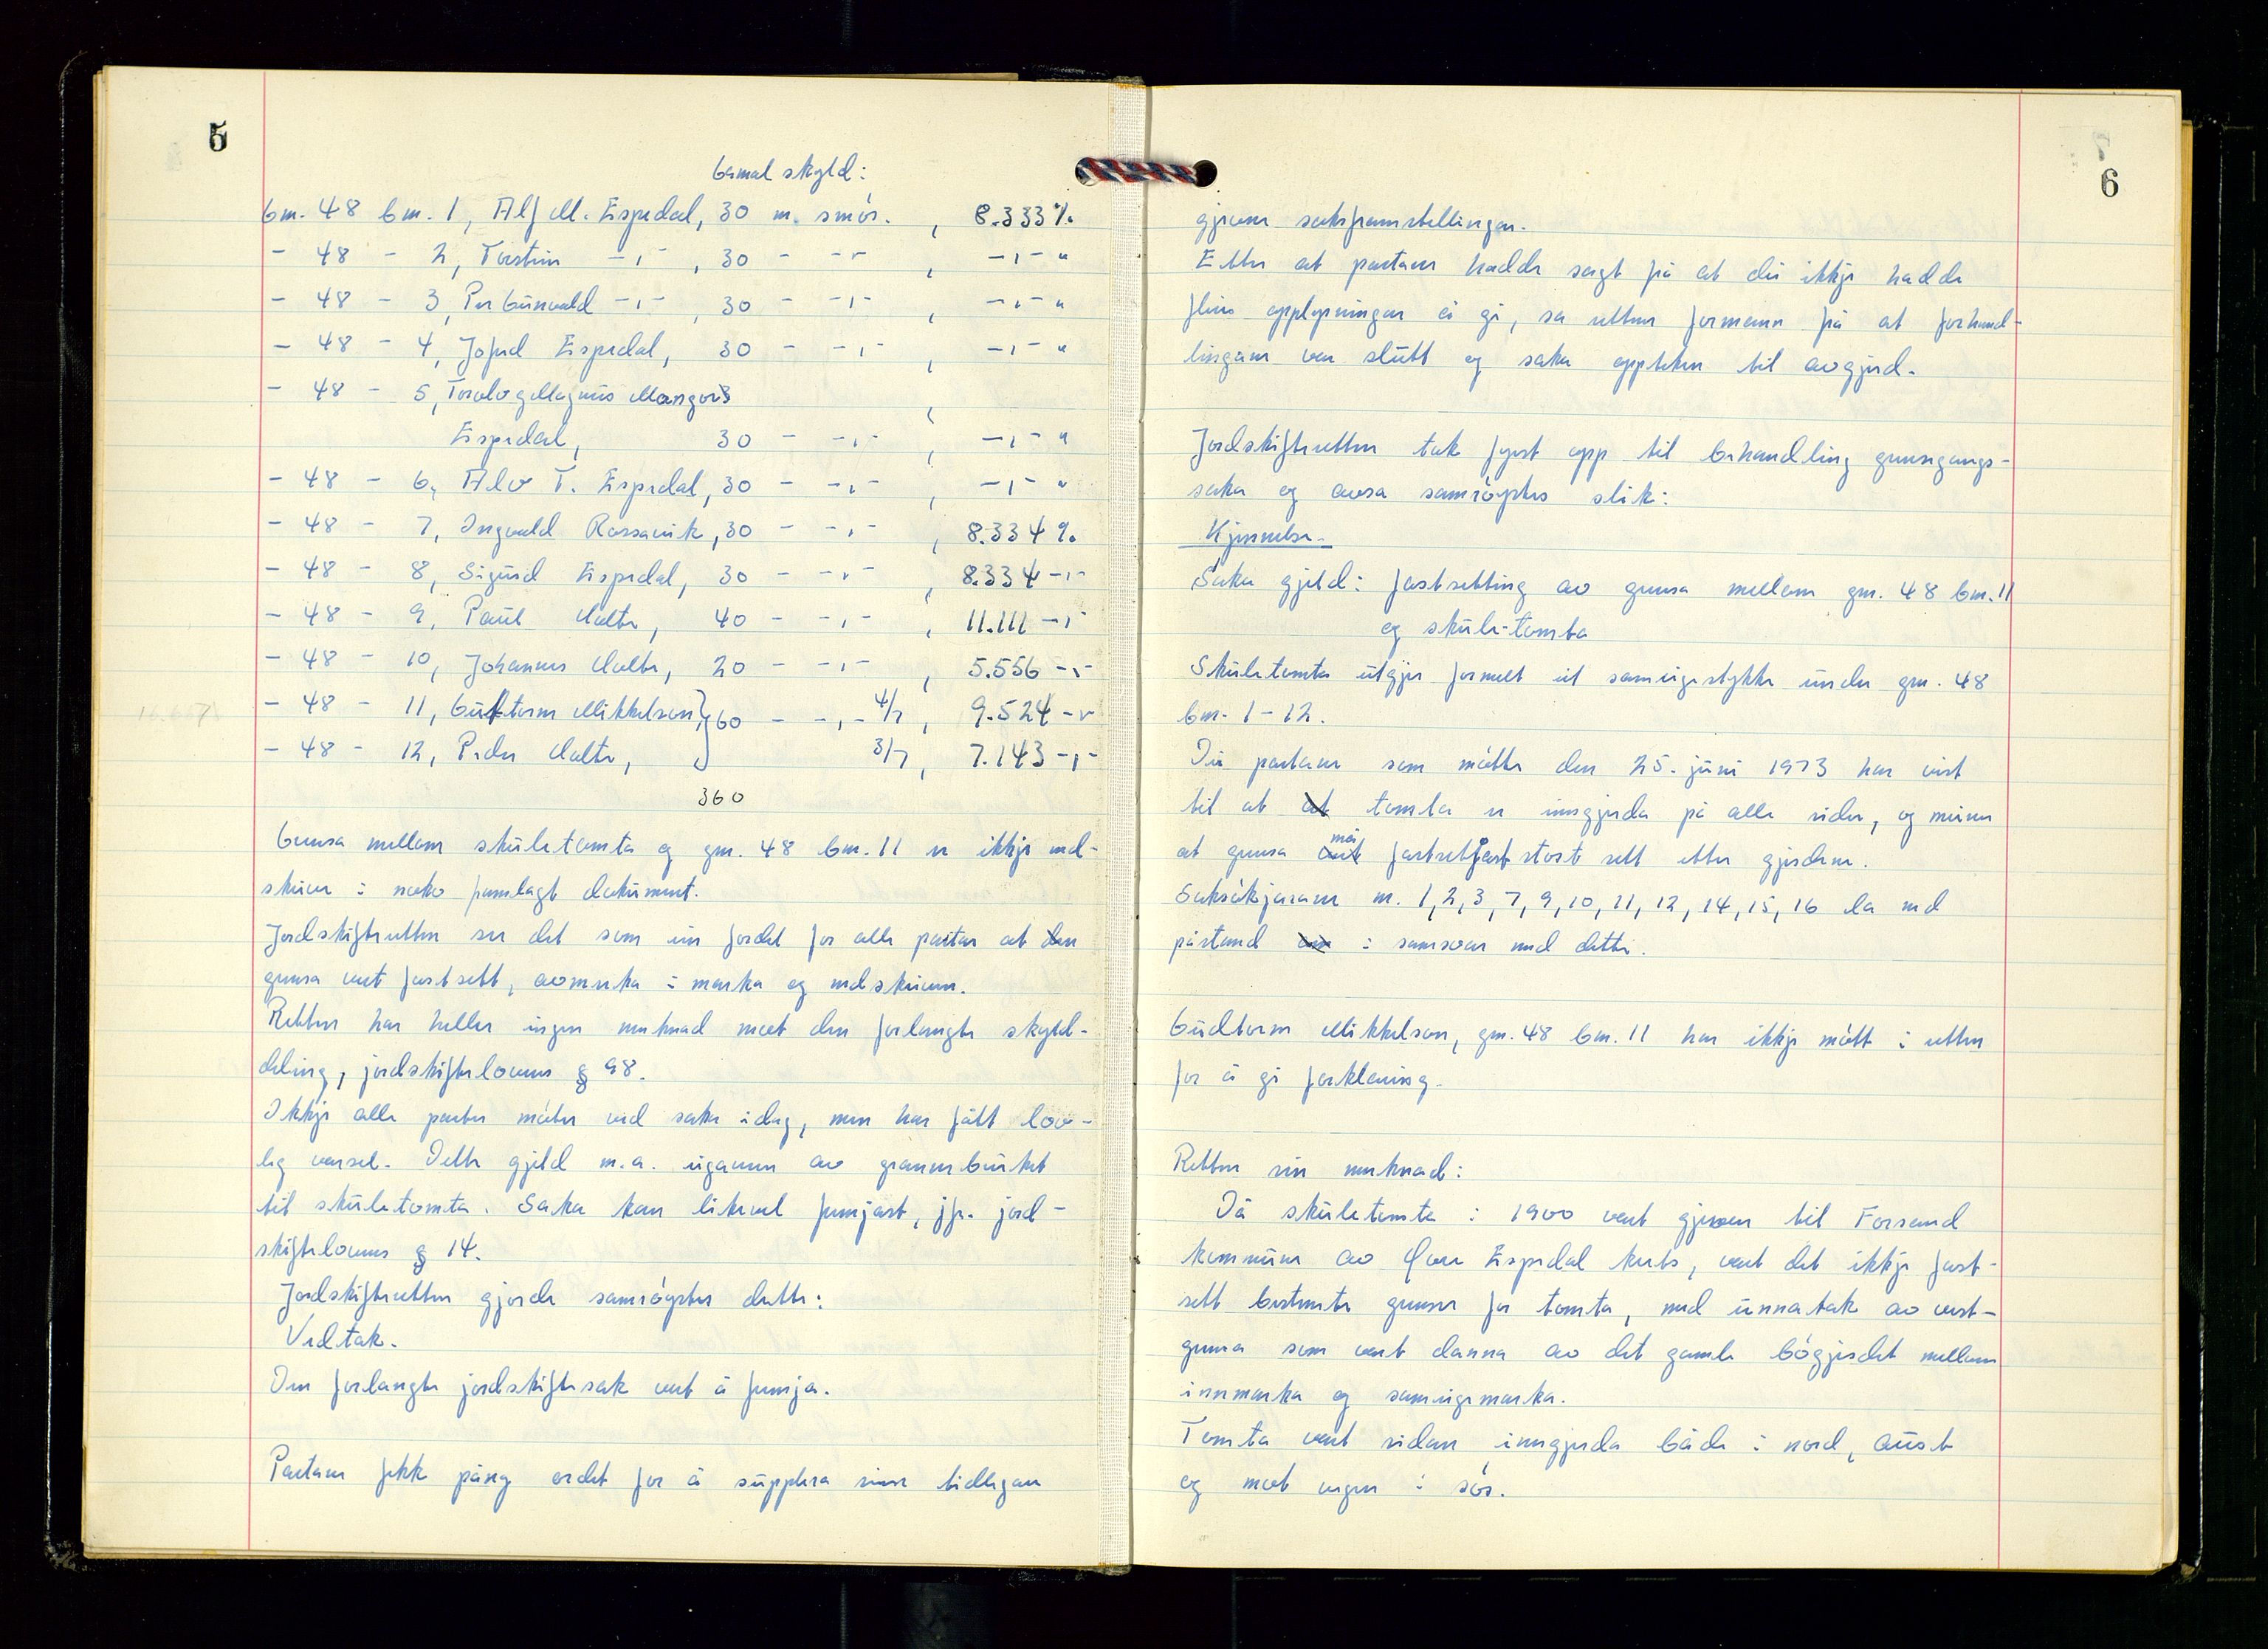 5
Gamal skyld:
Gnr. 48 bnr. 1, Alf M. Espedal, 30 m. smör. , 8.333%
- 48 - 2, Torstein -,- , 30 - -,- , -,- "
- 48 - 3, Per Gunvald -,- , 30 - -,- , -,- "
- 48 - 4, Jofrid Espedal, 30 - -,- , -,- "
- 48 - 5, Torolv og Magnus Mangor
Espedal, 30 - -,- , -,- "
- 48 - 6, Alv T. Espedal, 30 - -,- , -,- "
- 48 - 7, Ingvald Rossavik, 30 - -,- , 8.334 %
- 48 - 8, Sigurd Espedal, 30 - -,- , 8.334 -,-
- 48 - 9, Paul Malte, 40 - -,- , 11.111 -,-
- 48 - 10, Johannes Malte, 20 - -,- , 5.556 -,-
- 48 - 11, Guttorm Mikkelsen, } 60 - -,- 4/7 , 9.524 -,-
- 48 - 12, Peder Malte, 3/7 , 7.143 -,-
360
Grensa mellom skuletomta og gnr. 48 bnr. 11 er ikkje ned-
skriven i noko framlagt dokument.
Jordskifteretten ser det som ein fordel for alle partar at den
grensa vert fastsett, avmerka i marka og nedskriven.
Retten har heller ingen merknad mot den forlangte skyld-
deling, jordskiftelovens § 98.
Ikkje alle parter möter ved saka idag, men har fått lov-
leg varsel. Dette gjeld m.a. eigaren av grannebruket
til skuletomta. Saka kan likevel fremjast, jfr. jord-
skiftelovens § 14.
Jordskifteretten gjorde samröystes dette:
Vedtak.
Den forlangte jordskiftesak vert å fremja.
Partane fekk påny ordet for å supplera sine tidlegare
6
gjevne saksframstellingar.
Etter at partane hadde sagt frå at dei ikkje hadde
fleire opplysningar å gi, sa rettens formann frå at forhand-
lingane var slutt og saka oppteken til avgjerd.
Jordskifteretten tok fyrst opp til behandling grensegangs-
saka og avsa samröystes slik:
Kjennelse.
Saka gjeld: Fastsetting av grensa mellom gnr. 48 bnr. 11
og skule-tomta
Skuletomta utgjer formelt eit sameigestykke under gnr. 48
bnr. 1-12.
Dei partane som mötte den 25. juni 1973 har vist
til at at tomta er inngjerda på alle sider, og meiner
at grensa må fastsetjast stort sett etter gjerdene.
Saksökjarane nr. 1, 2, 3, 7, 9, 10, 11, 12, 14, 15, 16 la ned
påstand om i samsvar med dette.
Gudtorm Mikkelsen, gnr. 48 bnr. 11 har ikkje mött i retten
for å gi forklaring.
Retten sin merknad:
Då skuletomta i 1900 vart gjeven til Forsand
kommune av Övre Espedal krets, vart det ikkje fast-
sett bestemte grenser for tomta, med unnatak av vest-
grensa som vart danna av det gamle bögjerdet mellom
innmarka og sameigemarka.
Tomta vart sidan inngjerda både i nord, aust
og mot vegen i sör.